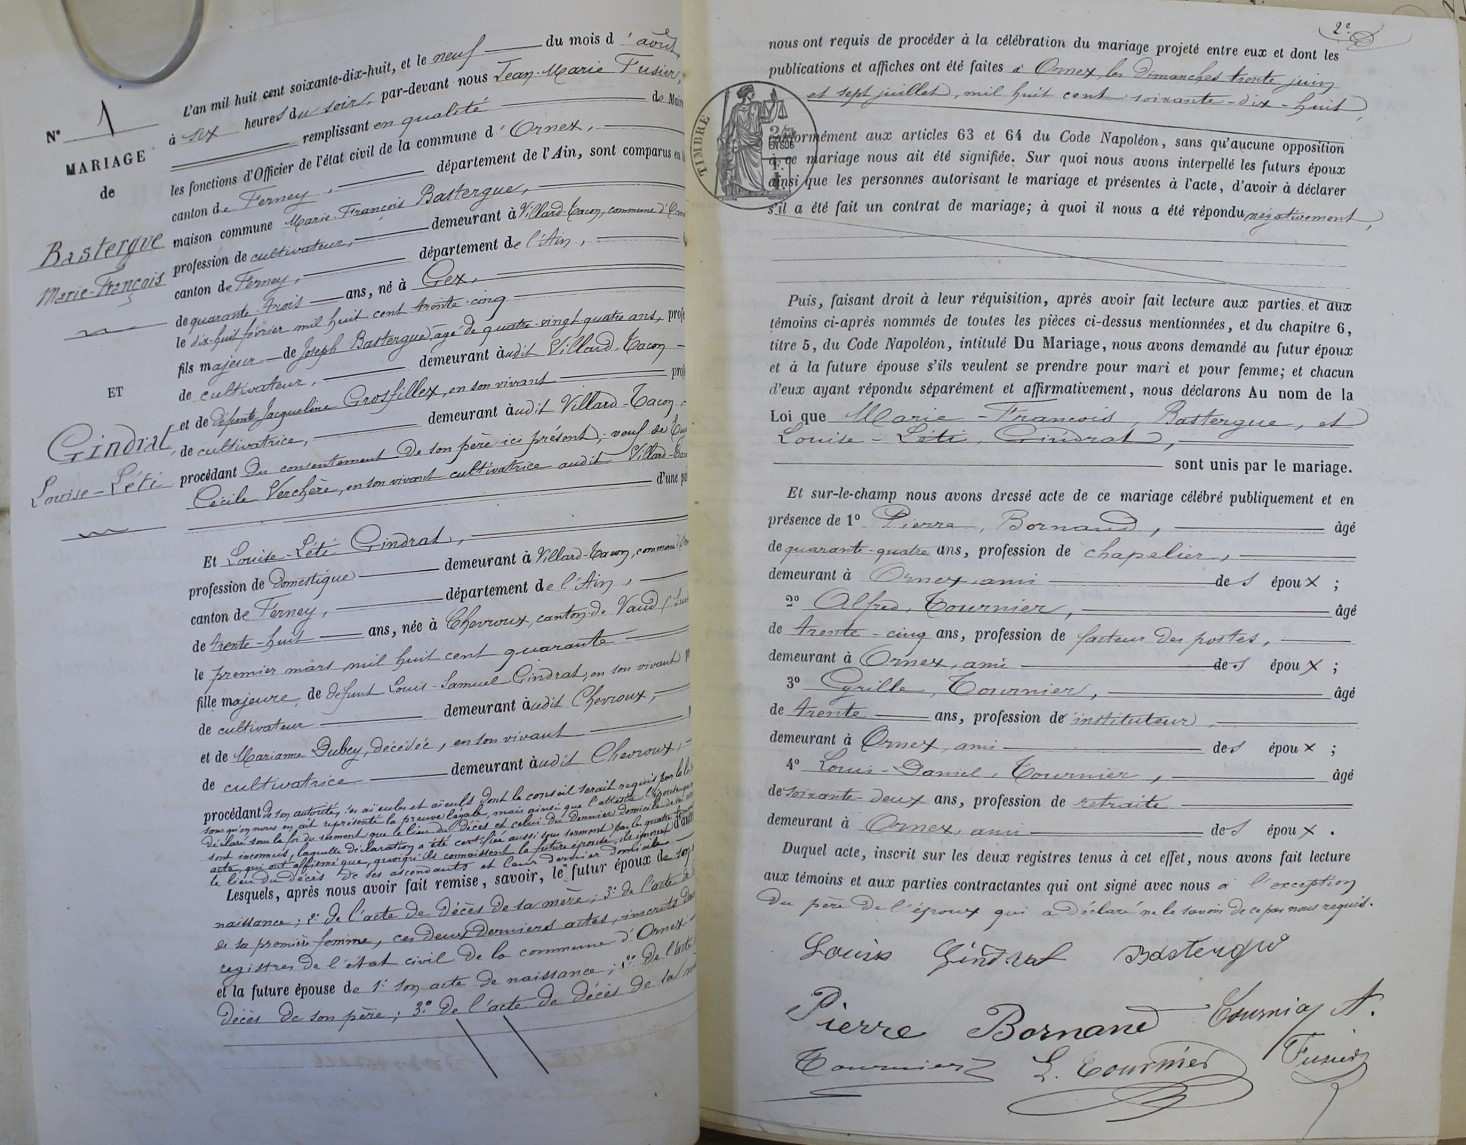 N° 1
MARIAGE
de
Bastergue
Marie-François
ET
Gindrat,
Louise-Léti
L'an mil huit cent soixante-dix-huit, et le neuf du mois d'août
à six heures du soir, par-devant nous Jean-Marie Fusier,
remplissant en qualité de Maire
les fonctions d'Officier de l'état civil de la commune d'Ornex,
canton de Ferney, département de l'Ain, sont comparus en la
maison commune Marie François Bastergue,
profession de cultivateur, demeurant à Villard-Tacon, commune d'
canton de Ferney, département de l'Ain,
de quarante-trois ans, né à Gex,
le dix-huit février mil huit cent trente-cinq
fils majeur de Joseph Bastergue, âgé de quatre-vingt quatre ans, profe
de cultivateur, demeurant audit Villard-Tacon
et de défunte Jacqueline Grosfillex, en son vivant prof
de cultivatrice, demeurant audit Villard-Tacon
procédant du consentement de son père ici présent; veuf de
Cécile Verchère, en son vivant cultivatrice audit Villard-Tacon
d'une pa
Et Louise-Léti Gindrat,
profession de domestique demeurant à Villard-Tacon, commune
canton de Ferney, département de l'Ain,
de trente-huit ans, née à Chevroux, canton de Vaud (
le premier mars mil huit cent quarante
fille majeure de défunt Louis-Samuel Gindrat, en son vivant
de cultivateur demeurant audit Chevroux,
et de Marianne Dubey, décédée, en son vivant
de cultivatrice demeurant audit Chevroux,
procédant de son autorité, ses aïeules et aïeuls dont le conseil serait requis par la loi
sans qu'on nous en ait représenté la preuve légale, mais ainsi que l'atteste l'épouse
déclaré sous la foi du serment que le lieu du décès et celui du dernier domicile de
sont inconnus, laquelle déclaration a été certifiée aussi sous serment par les quatre témoins
acte, qui ont affirmé que, quoiqu'ils connaissent la future épouse, ils ignorent d'autre
le lieu du décès de ses ascendants et leur dernier domicile
Lesquels, après nous avoir fait remise, savoir, le futur époux de son
naissance; 2° de l'acte de décès de sa mère; 3° de l'acte de
de sa première femme, ces deux derniers actes, inscrits
registres de l'état civil de la commune d'Ornex
et la future épouse de 1° son acte de naissance; 2° de l'acte
décès de son père; 3° de l'acte de décès de sa
2e
nous ont requis de procéder à la célébration du mariage projeté entre eux et dont les
publications et affiches ont été faites à Ornex, les dimanches trente juin
et sept juillet, mil huit cent soixante-dix-huit,
TIMBRE
conformément aux articles 63 et 64 du Code Napoléon, sans qu'aucune opposition
à ce mariage nous ait été signifiée. Sur quoi nous avons interpellé les futurs époux
ainsi que les personnes autorisant le mariage et présentes à l'acte, d'avoir à déclarer
s'il a été fait un contrat de mariage; à quoi il nous a été répondu négativement,
Puis, faisant droit à leur réquisition, après avoir fait lecture aux parties et aux
témoins ci-après nommés de toutes les pièces ci-dessus mentionnées, et du chapitre 6,
titre 5, du Code Napoléon, intitulé Du Mariage, nous avons demandé au futur époux
et à la future épouse s'ils veulent se prendre pour mari et pour femme; et chacun
d'eux ayant répondu séparément et affirmativement, nous déclarons Au nom de la
Loi que Marie-François, Bastergue, et
Louise-Léti, Gindrat,
sont unis par le mariage.
Et sur-le-champ nous avons dressé acte de ce mariage célébré publiquement et en
présence de 1° Pierre, Bornand, âgé
de quarante-quatre ans, profession de chapelier,
demeurant à Ornex, ami des époux;
2° Alfred, Tournier, âgé
de trente-cinq ans, profession de facteur des postes,
demeurant à Ornex, ami des époux;
3° Cyrille, Tournier, âgé
de trente ans, profession de instituteur
demeurant à Ornex, ami des époux;
4° Louis-Daniel, Tournier, âgé
de soixante-deux ans, profession de retraité
demeurant à Ornex, ami des époux.
Duquel acte, inscrit sur les deux registres tenus à cet effet, nous avons fait lecture
aux témoins et aux parties contractantes qui ont signé avec nous à l'exception
du père de l'époux qui a déclaré ne le savoir de ce par nous requis.
Louise Gindrat Bastergue
Pierre Bornand Tournier A.
Tournier L. Tournier Fusier